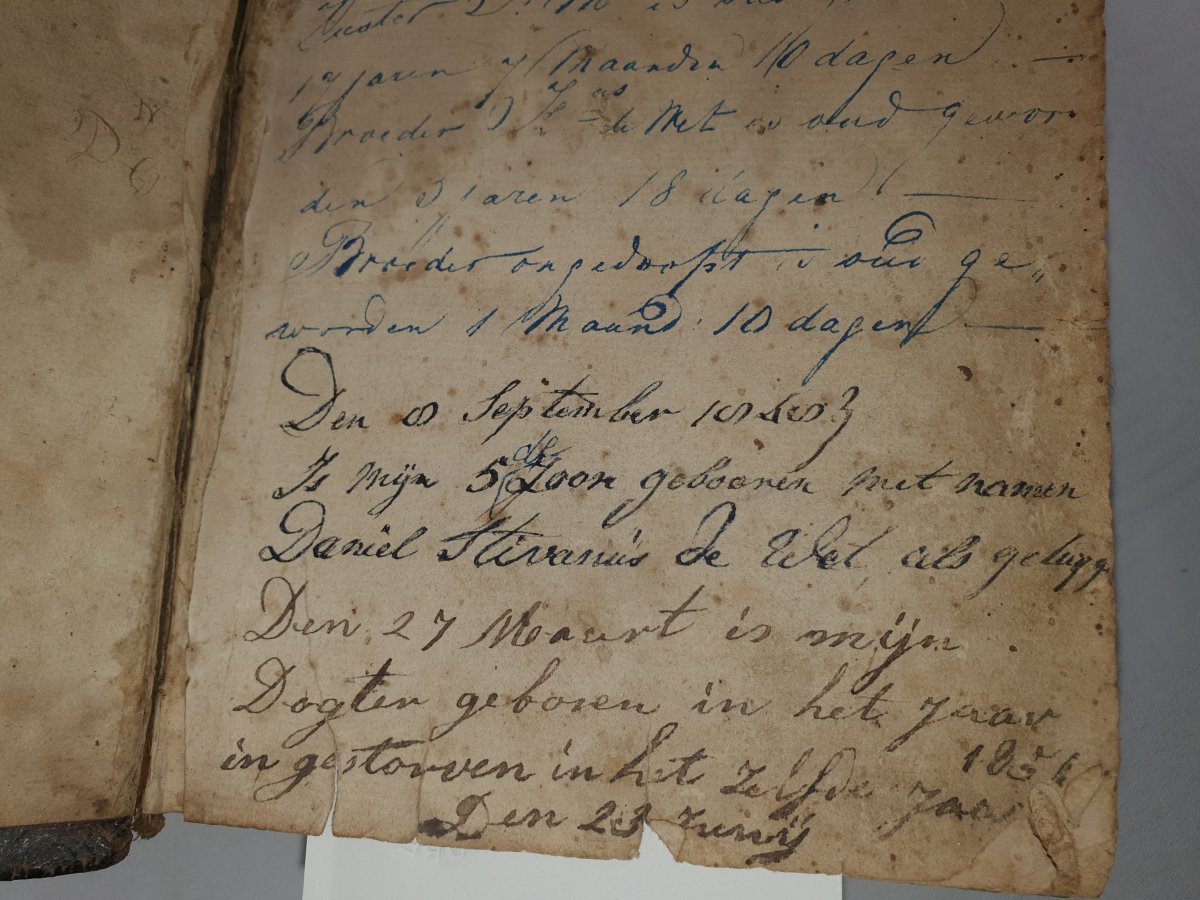 Zuster is oud
17 jaren 7 Maanden 16 dagen —
Broeder Js as = de Wet is oud gewor
den 3 Jaren 18 dagen —
Broeder ongedoopt is oud ge„
worden 1 Maand 10 dagen —
Den 8 September 1848
Is mijn 5 de Zoon gebooren met namen
Daniël Stivanus de Wet, als getuyge
Den 27 Maart is mijn
Dogter geboren in het Jaar
in gestorven in het zelfde Jaa
Den 23 Junij
D W